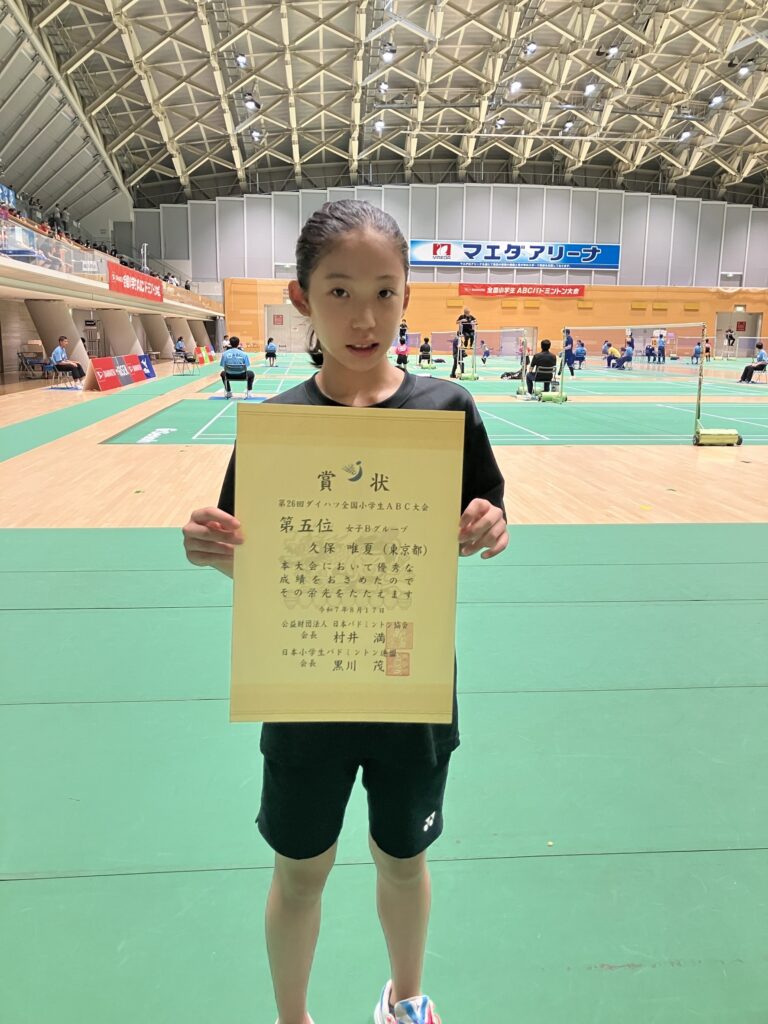 マエダアリーナ
MAEDA
全国小学生ABCバドミントン大会
賞状
第26回ダイハツ全国小学生ABC大会
第五位 女子Bグループ
久保 唯夏(東京都)
本大会において優秀な
成績をおさめたので
その栄光をたたえます
令和7年8月17日
公益財団法人 日本バドミントン協会
会長 村井 満
日本小学生バドミントン連盟
会長 黒川 茂